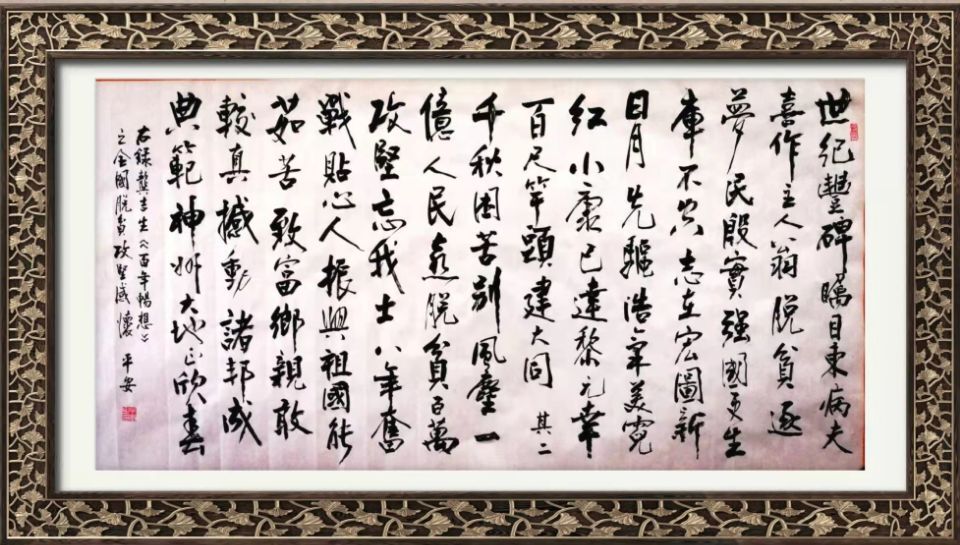 世纪豐碑矚目東病夫
喜作主人翁脱貧逐
夢民殷實强國更生
庫不穷志在宏圖新
日月先驅浩氣美霓
红小康已達黎元幸
百尺竿頭建大同 其二
千秋困苦别風塵一
億人民脱貧百萬
攻堅忘我士八年奮
戰貼心人振興祖國能
茹苦致富鄉親敢
較真撼動諸邦成
典範神州大地正欣春
右録龔吉生《百年暢想》
之全國脱貧攻堅感懷 平安